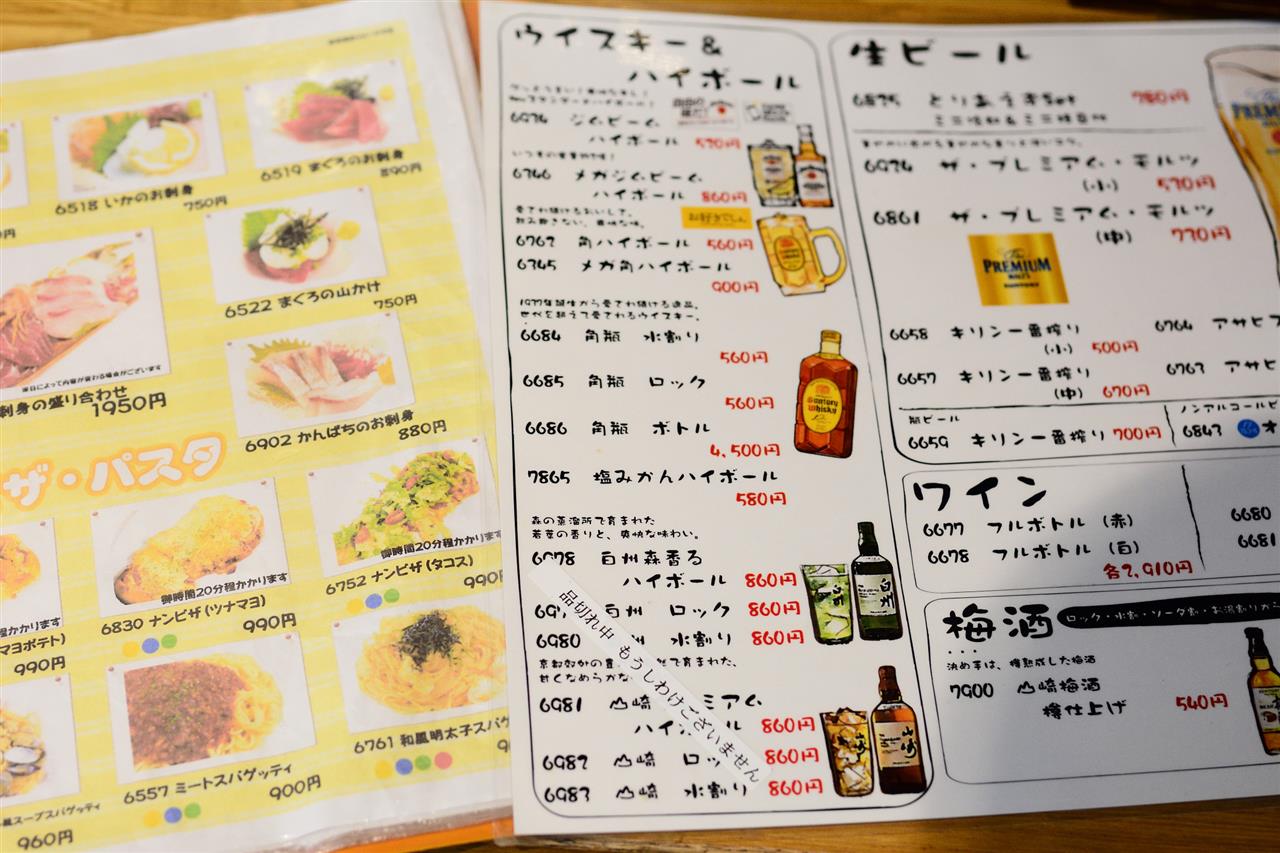 6518 いかのお刺身
750円
6519 まぐろのお刺身
890円
6522 まぐろの山かけ
750円
刺身の盛り合わせ
1950円
6902 かんぱちのお刺身
880円
ザ・パスタ
御時間20分程かかります
マヨポテト)
990円
6830 ナンピザ(ツナマヨ)
990円
御時間20分程かかります
6752 ナンピザ(タコス)
990円
風スープスパゲッティ
960円
6557 ミートスパゲッティ
900円
6761 和風明太子スパゲ
ウイスキー&
ハイボール
ジムビーム
ハイボール 570円
メガジムビーム
ハイボール 860円
お好きでしょ
6762 角ハイボール 560円
メガ角ハイボール
900円
世代を超えて愛されるウイスキー。
6684 角瓶 水割り
560円
6685 角瓶 ロック
560円
6686 角瓶 ボトル
4,500円
7865 塩みかんハイボール
580円
森の蒸溜所で育まれた
若葉の香りと、爽快な味わい。
白州森香る
ハイボール 860円
白州 ロック 860円
6980 水割り 860円
品切れ中 もうしわけございません
6981 山崎 ミアム
ハイ ル 860円
6982 山崎 ロッ 860円
6983 山崎 水割り 860円
生ビール
780円
ザ・プレミアム・モルツ
(小) 570円
6861 ザ・プレミアム・モルツ
(中) 770円
The PREMIUM MALT'S
SUNTORY
6658 キリン一番搾り
(小) 500円
6764 アサヒス
6657 キリン一番搾り
(中) 670円
6763 アサヒ
瓶ビール
6659 キリン一番搾り 700円
ノンアルコールビ
6843 オ
ワイン
6677 フルボトル (赤)
6678 フルボトル (白)
各2,910円
6680
6681
梅酒
ロック・水割・ソーダ割・お湯割り
決め手は、樽熟成した梅酒
7900 山崎梅酒
樽仕上げ 540円